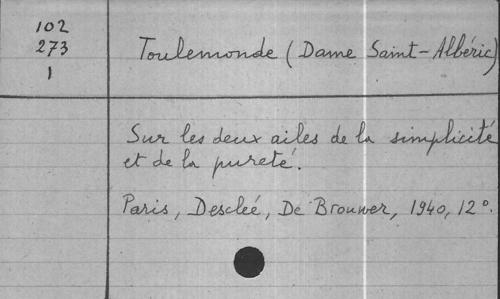 102
273
1
Toulemonde (Dame Saint-Albéric)
Sur les deux ailes de la simplicité
et de la pureté.
Paris, Desclée, De Brouwer, 1940, 12°.